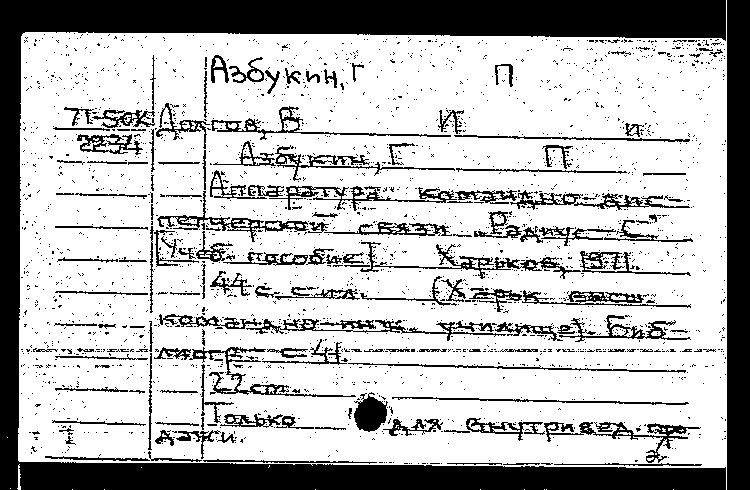 Азбукин, Г П
71-50К Долгов, В И и
2234
Азбукин, Г П
Аппаратура командно-дис-
петчерской связи „Радиус-С"
[Учеб. пособие]. Харьков, 1971.
44 с. с ил. (Харьк высш.
командно-инж. училище). Биб-
лиогр.- с 41.
22см.
Только для внутривед. про
дажи.